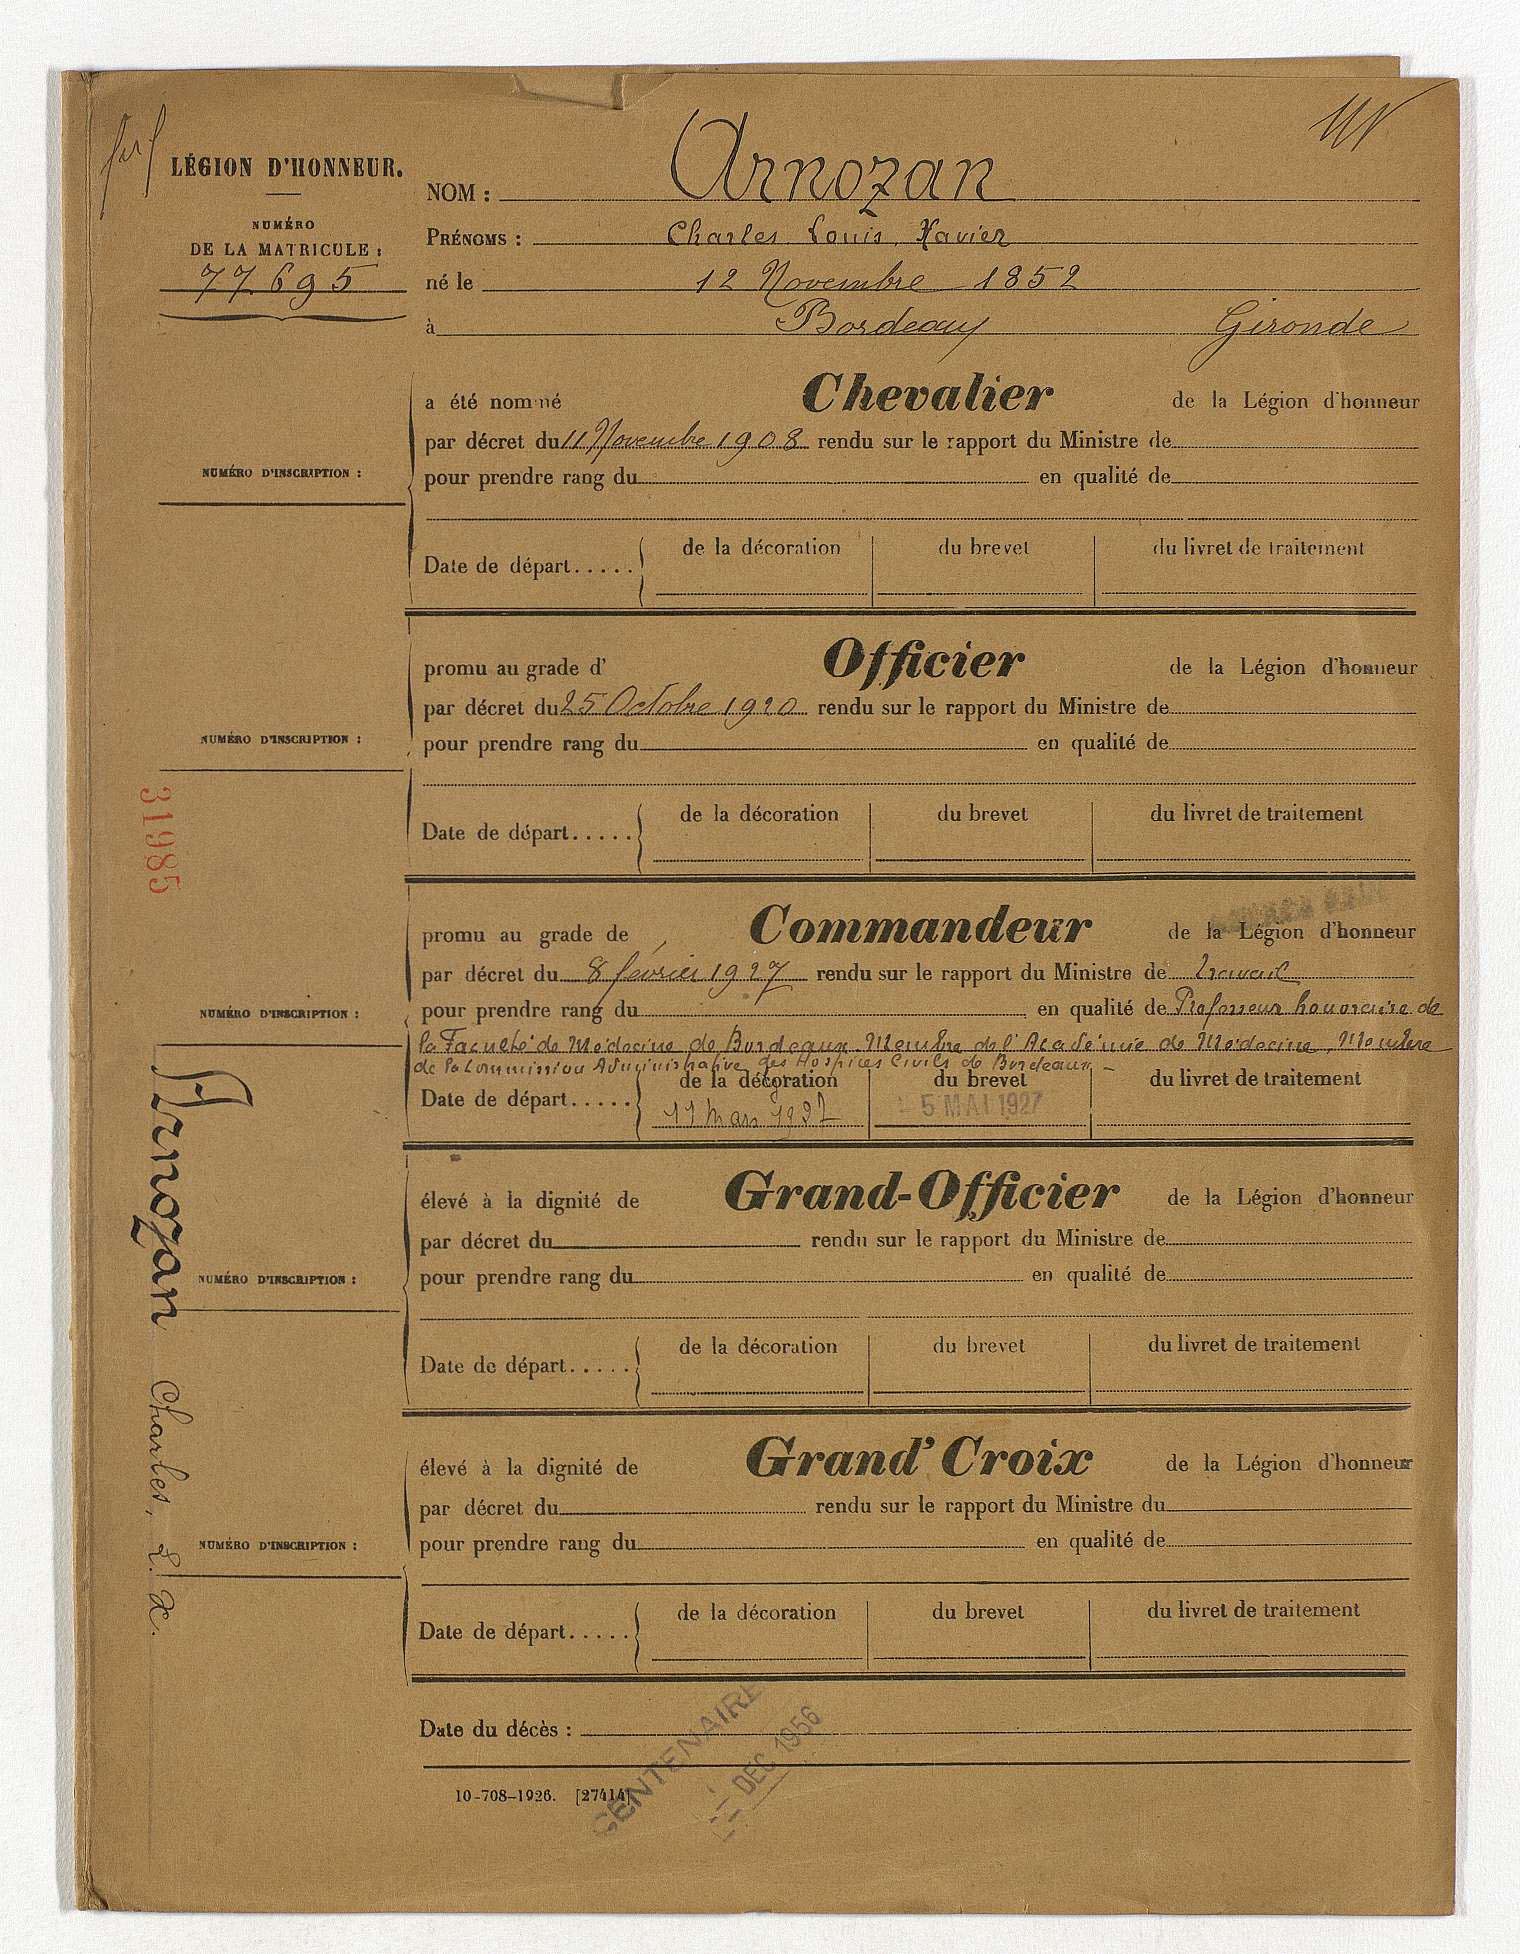 LÉGION D'HONNEUR.
NUMÉRO
DE LA MATRICULE :
77.695
NOM : Arnozan
PRÉNOMS : Charles Louis Xavier
né le 12 Novembre 1852
à Bordeaux Gironde
a été nommé Chevalier de la Légion d'honneur
par décret du 11 Novembre 1908 rendu sur le rapport du Ministre de
NUMÉRO D'INSCRIPTION :
pour prendre rang du en qualité de
Date de départ..... de la décoration du brevet du livret de traitement
promu au grade d' Officier de la Légion d'honneur
par décret du 25 Octobre 1920 rendu sur le rapport du Ministre de
NUMÉRO D'INSCRIPTION :
pour prendre rang du en qualité de
Date de départ..... de la décoration du brevet du livret de traitement
31985
promu au grade de Commandeur de la Légion d'honneur
par décret du 8 février 1927 rendu sur le rapport du Ministre de Travail
NUMÉRO D'INSCRIPTION :
pour prendre rang du en qualité de Professeur honoraire de
la Faculté de Médecine de Bordeaux Membre de l'Académie de Médecine, Membre
de la Commission Administrative des Hospices Civils de Bordeaux -
Date de départ..... de la décoration du brevet du livret de traitement
11 Mars 1927 - 5 MAI 1927
élevé à la dignité de Grand-Officier de la Légion d'honneur
par décret du rendu sur le rapport du Ministre de
NUMÉRO D'INSCRIPTION :
pour prendre rang du en qualité de
Date de départ..... de la décoration du brevet du livret de traitement
Arnozan Charles, L. X.
élevé à la dignité de Grand' Croix de la Légion d'honneur
par décret du rendu sur le rapport du Ministre du
NUMÉRO D'INSCRIPTION :
pour prendre rang du en qualité de
Date de départ..... de la décoration du brevet du livret de traitement
Date du décès :
10-708-1926. [27414]
CENTENAIRE
DEC 1956